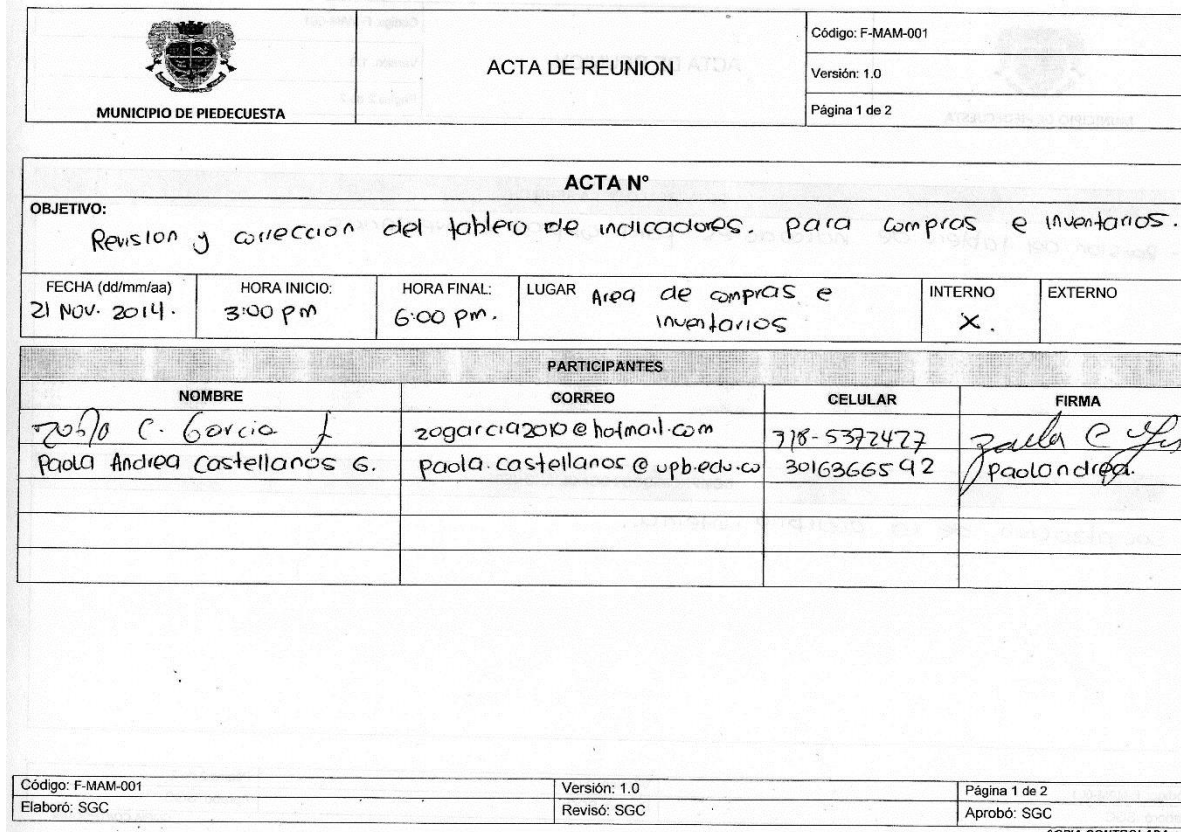 MUNICIPIO DE PIEDECUESTA
ACTA DE REUNION
Código: F-MAM-001
Versión: 1.0
Página 1 de 2
ACTA N°
OBJETIVO:
Revision y correccion del tablero de indicadores. para compras e inventarios.
FECHA (dd/mm/aa)
21 Nov. 2014.
HORA INICIO:
3:00 pm
HORA FINAL:
6:00 pm.
LUGAR Area de compras e
inventarios
INTERNO
X.
EXTERNO
PARTICIPANTES
NOMBRE CORREO CELULAR FIRMA
C. Garcia zogarcia2010@hotmail.com 318-5372477
Paola Andrea Castellanos G. paola.castellanos@upb.edu.co 3016366592 Paolandrea.
Código: F-MAM-001 Versión: 1.0 Página 1 de 2
Elaboró: SGC Revisó: SGC Aprobó: SGC
COPIA CONTROLADA